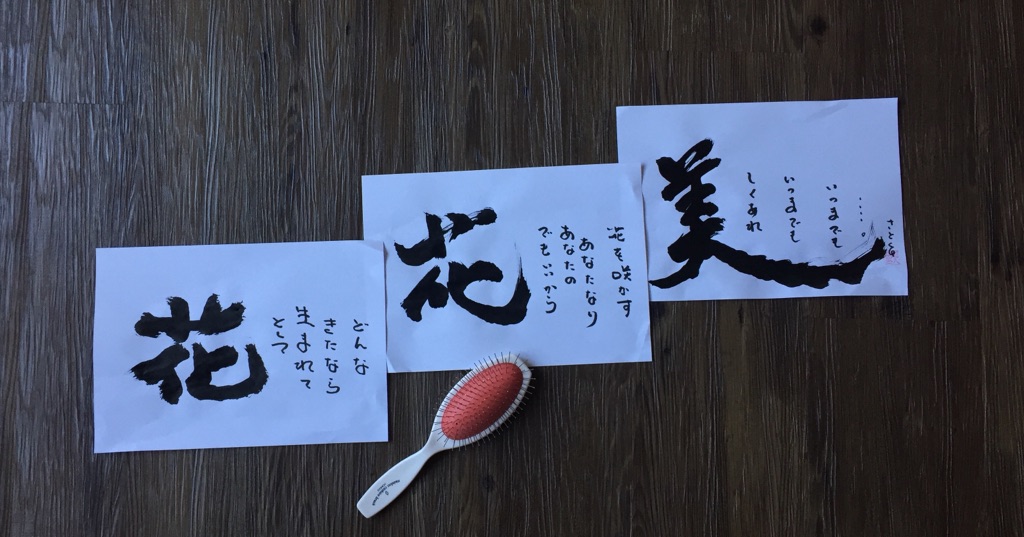 花
として
生まれて
きたなら
どんな
花
でもいいから
あなたの
あなたなり
花を咲かす
美
しくあれ
いつまでも
いつまでも
・・・・。